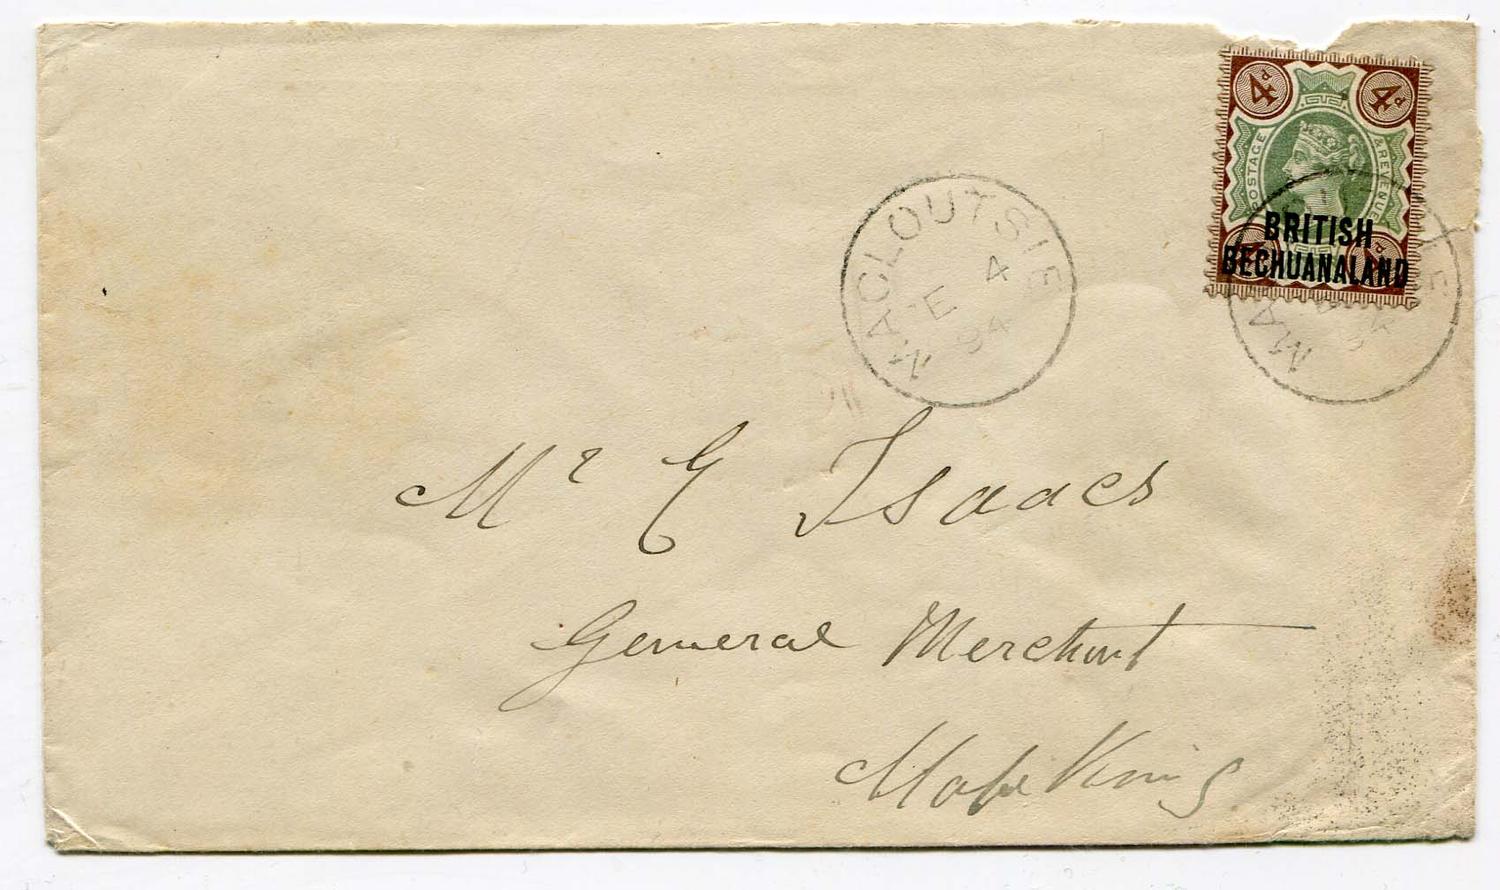 4d 4d
POSTAGE & REVENUE
BRITISH
BECHUANALAND
MACLOUTSIE
4
94
Mr G Isaacs
General Merchant
Mafe King